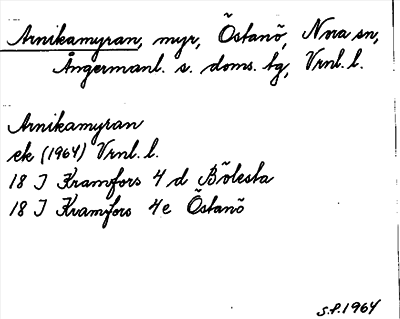 Arnikamyran, myr, Östanö, Nora sn,
Ångermanl. s. doms. tg, Vrnl. l.
Arnikamyran
ek (1964) Vrnl. l.
18 I Kramfors 4 d Bölesta
18 I Kramfors 4e Östanö
S.P. 1964